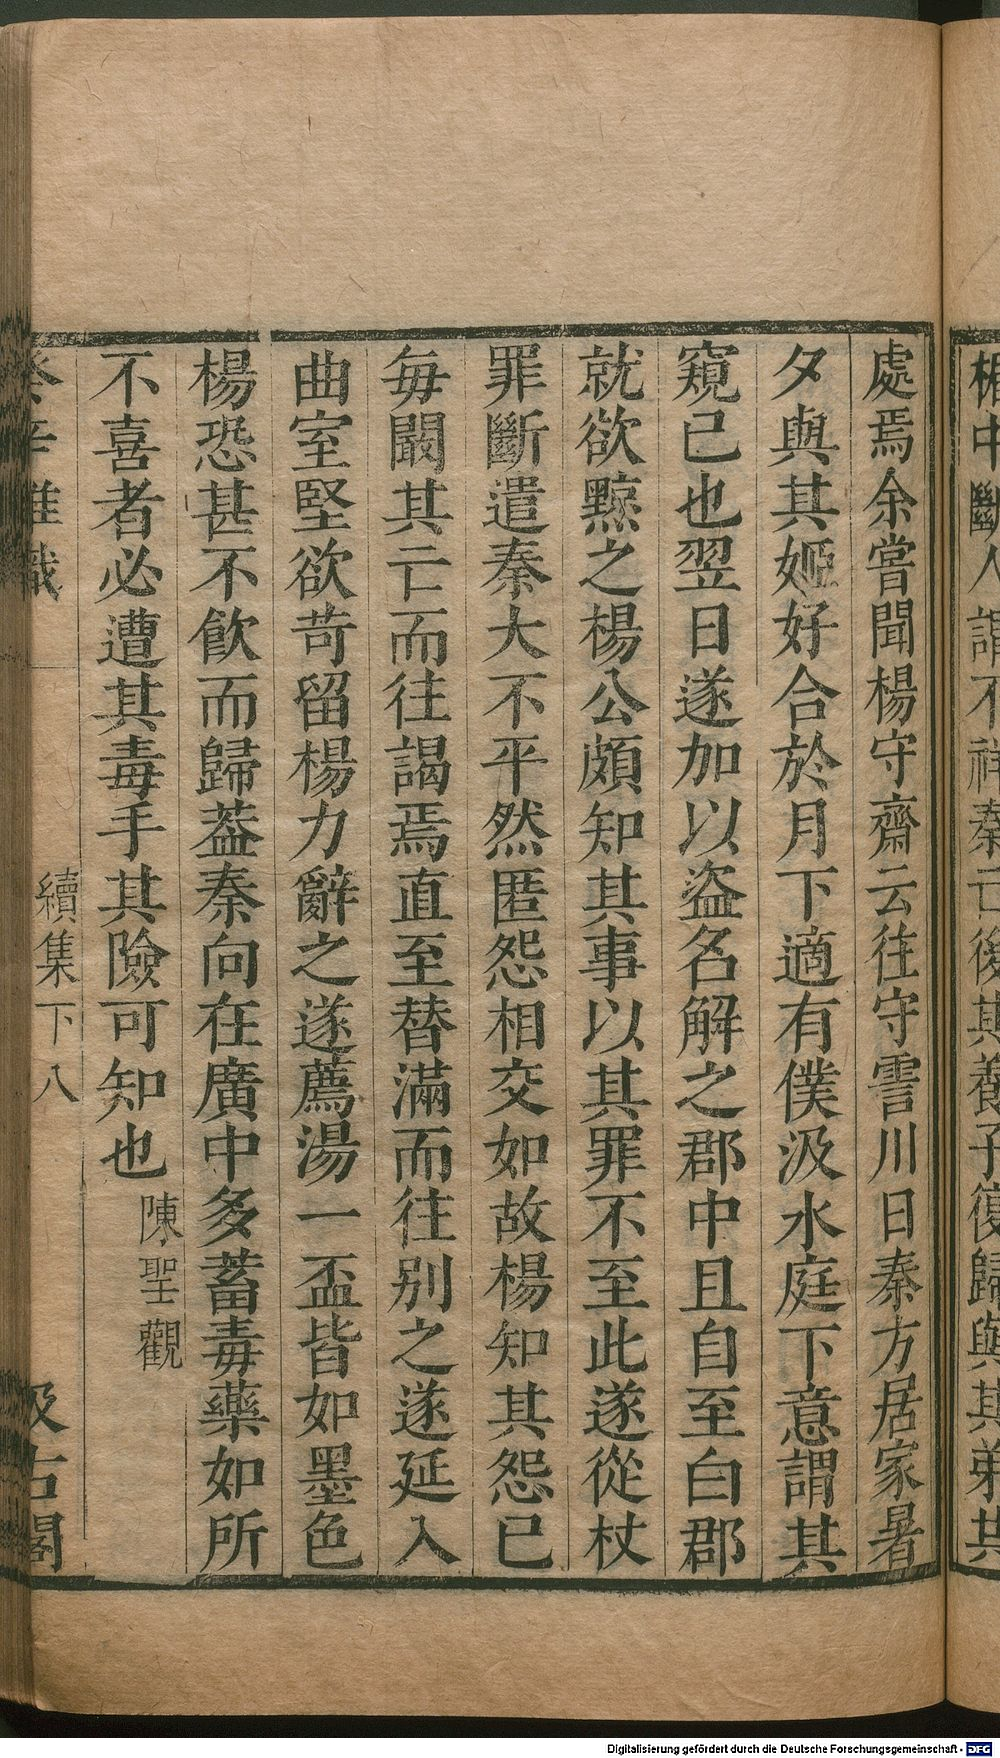 中幽人謂不祥秦亡後其養子復歸與其弟共
處焉余嘗聞楊守齋云往守霅川日秦方居家暑
夕與其姬好合於月下適有僕汲水庭下意謂其
窺己也翌日遂加以盜名解之郡中且自至白郡
就欲黥之楊公頗知其事以其罪不至此遂從杖
罪斷遣秦大不平然匿怨相交如故楊知其怨已
每闞其亡而往謁焉直至替滿而往别之遂延入
曲室堅欲苛留楊力辭之遂薦湯一盃皆如墨色
楊恐甚不飲而歸葢秦向在廣中多蓄毒藥如所
不喜者必遭其毒手其險可知也 陳聖觀
癸辛雜識 續集下 八 汲古閣
Digitalisierung gefördert durch die Deutsche Forschungsgemeinschaft - DFG